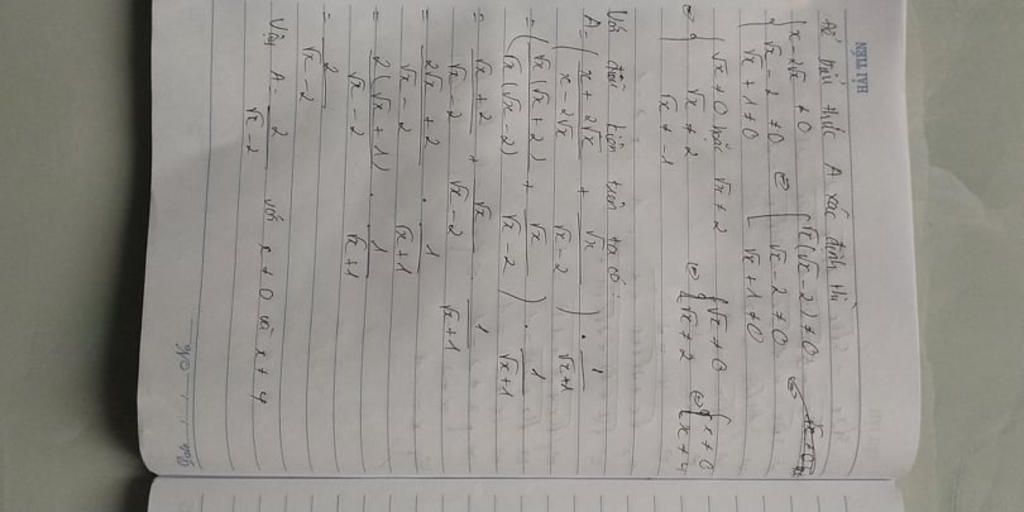 HẢI TIẾN
để biểu thức A xác định thì
{ x - 2√x ≠ 0
√x - 2 ≠ 0
√x + 1 ≠ 0
⇔ { √x(√x - 2) ≠ 0
√x - 2 ≠ 0
√x + 1 ≠ 0
⇔
⇔ { √x ≠ 0 hoặc √x ≠ 2
√x ≠ 2
√x ≠ -1
⇔ { √x ≠ 0
√x ≠ 2
⇔ { x ≠ 0
x ≠ 4
Với điều kiện trên ta có:
A = ( x + 2√x / x - 2√x + √x / √x - 2 ) . 1 / √x+1
= ( √x(√x + 2) / √x(√x - 2) + √x / √x - 2 ) . 1 / √x+1
= √x + 2 / √x - 2 + √x / √x - 2 . 1 / √x+1
= 2√x + 2 / √x - 2 . 1 / √x+1
= 2(√x + 1) / √x - 2 . 1 / √x+1
= 2 / √x - 2
Vậy A = 2 / √x - 2 với x ≠ 0 và x ≠ 4
Date / / No